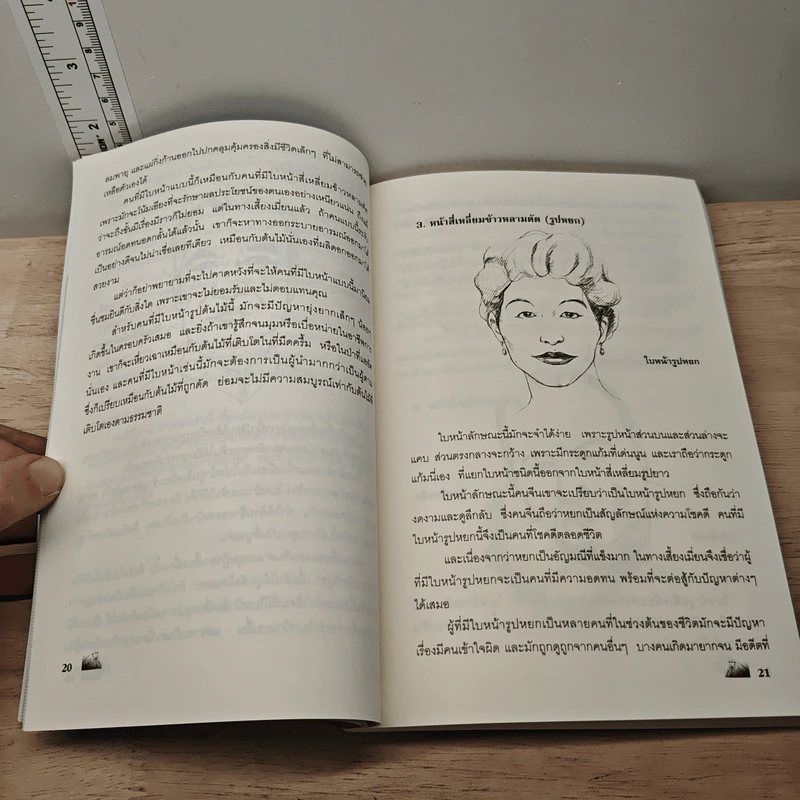 ลมพายุ และแผ่กิ่งก้านออกไปปกคลุมคุ้มครองสิ่งมีชีวิตเล็กๆ ที่ไม่สามารถช่วย
เหลือตัวเองได้
คนที่มีใบหน้าแบบนี้ก็เหมือนกับคนที่มีใบหน้าสี่เหลี่ยมข้าวหลามตัด
เพราะมักจะโน้มเอียงที่จะรักษาผลประโยชน์ของตนเองอย่างเหนียวแน่น ถึงแม้
ว่าจะถึงขั้นมีเรื่องมีราวก็ไม่ยอม แต่ในทางเสี้ยงเมี่ยนแล้ว ถ้าคนแบบนี้ระงับ
อารมณ์อดทนอดกลั้นได้แล้วนั้น เขาก็จะหาทางออกระบายอารมณ์ออกมาได้
เป็นอย่างดีจนไม่น่าเชื่อเลยทีเดียว เหมือนกับต้นไม้นั่นเองที่ผลิดอกออกมาได้
สวยงาม
แต่ว่าก็อย่าพยายามที่จะไปคาดหวังที่จะให้คนที่มีใบหน้าแบบนี้มานิยม
ชื่นชมยินดีกับสิ่งใด เพราะเขาจะไม่ยอมรับและไม่ตอบแทนคุณ
สำหรับคนที่มีใบหน้ารูปต้นไม้นี้ มักจะมีปัญหายุ่งยากเล็กๆ น้อยๆ
เกิดขึ้นในครอบครัวเสมอ และยิ่งถ้าเขารู้สึกจนมุมหรือเบื่อหน่ายในอาชีพการ
งาน เขาก็จะเหี่ยวเฉาเหมือนกับต้นไม้ที่เติบโตในที่มืดครึ้ม หรือในป่าที่แออัด
นั่นเอง และคนที่มีใบหน้าเช่นนี้มักจะต้องการเป็นผู้นำมากกว่าเป็นผู้ตาม
ซึ่งก็เปรียบเหมือนกับต้นไม้ที่ถูกดัด ย่อมจะไม่มีความสมบูรณ์เท่ากับต้นไม้ที่
เติบโตเองตามธรรมชาติ
20
3. หน้าสี่เหลี่ยมข้าวหลามตัด (รูปหยก)
ใบหน้ารูปหยก
ใบหน้าลักษณะนี้มักจะจำได้ง่าย เพราะรูปหน้าส่วนบนและส่วนล่างจะ
แคบ ส่วนตรงกลางจะกว้าง เพราะมีกระดูกแก้มที่เด่นนูน และเราถือว่ากระดูก
แก้มนี่เอง ที่แยกใบหน้าชนิดนี้ออกจากใบหน้าสี่เหลี่ยมรูปยาว
ใบหน้าลักษณะนี้คนจีนเขาจะเปรียบว่าเป็นใบหน้ารูปหยก ซึ่งถือกันว่า
งดงามและดูลึกลับ ซึ่งคนจีนถือว่าหยกเป็นสัญลักษณ์แห่งความโชคดี คนที่มี
ใบหน้ารูปหยกนี้จึงเป็นคนที่โชคดีตลอดชีวิต
และเนื่องจากว่าหยกเป็นอัญมณีที่แข็งมาก ในทางเสี้ยงเมี่ยนจึงเชื่อว่าผู้
ที่มีใบหน้ารูปหยกจะเป็นคนที่มีความอดทน พร้อมที่จะต่อสู้กับปัญหาต่างๆ
ได้เสมอ
ผู้ที่มีใบหน้ารูปหยกเป็นหลายคนที่ในช่วงต้นของชีวิตมักจะมีปัญหา
เรื่องมีคนเข้าใจผิด และมักถูกดูถูกจากคนอื่นๆ บางคนเกิดมายากจน มีอดีตที่
21